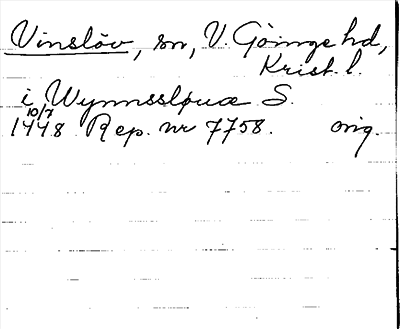 Vinslöv, sn, V. Göinge hd,
Krist. l.
i Wynnssløuæ S.
10/7
1448 Rep. nr 7758. orig.